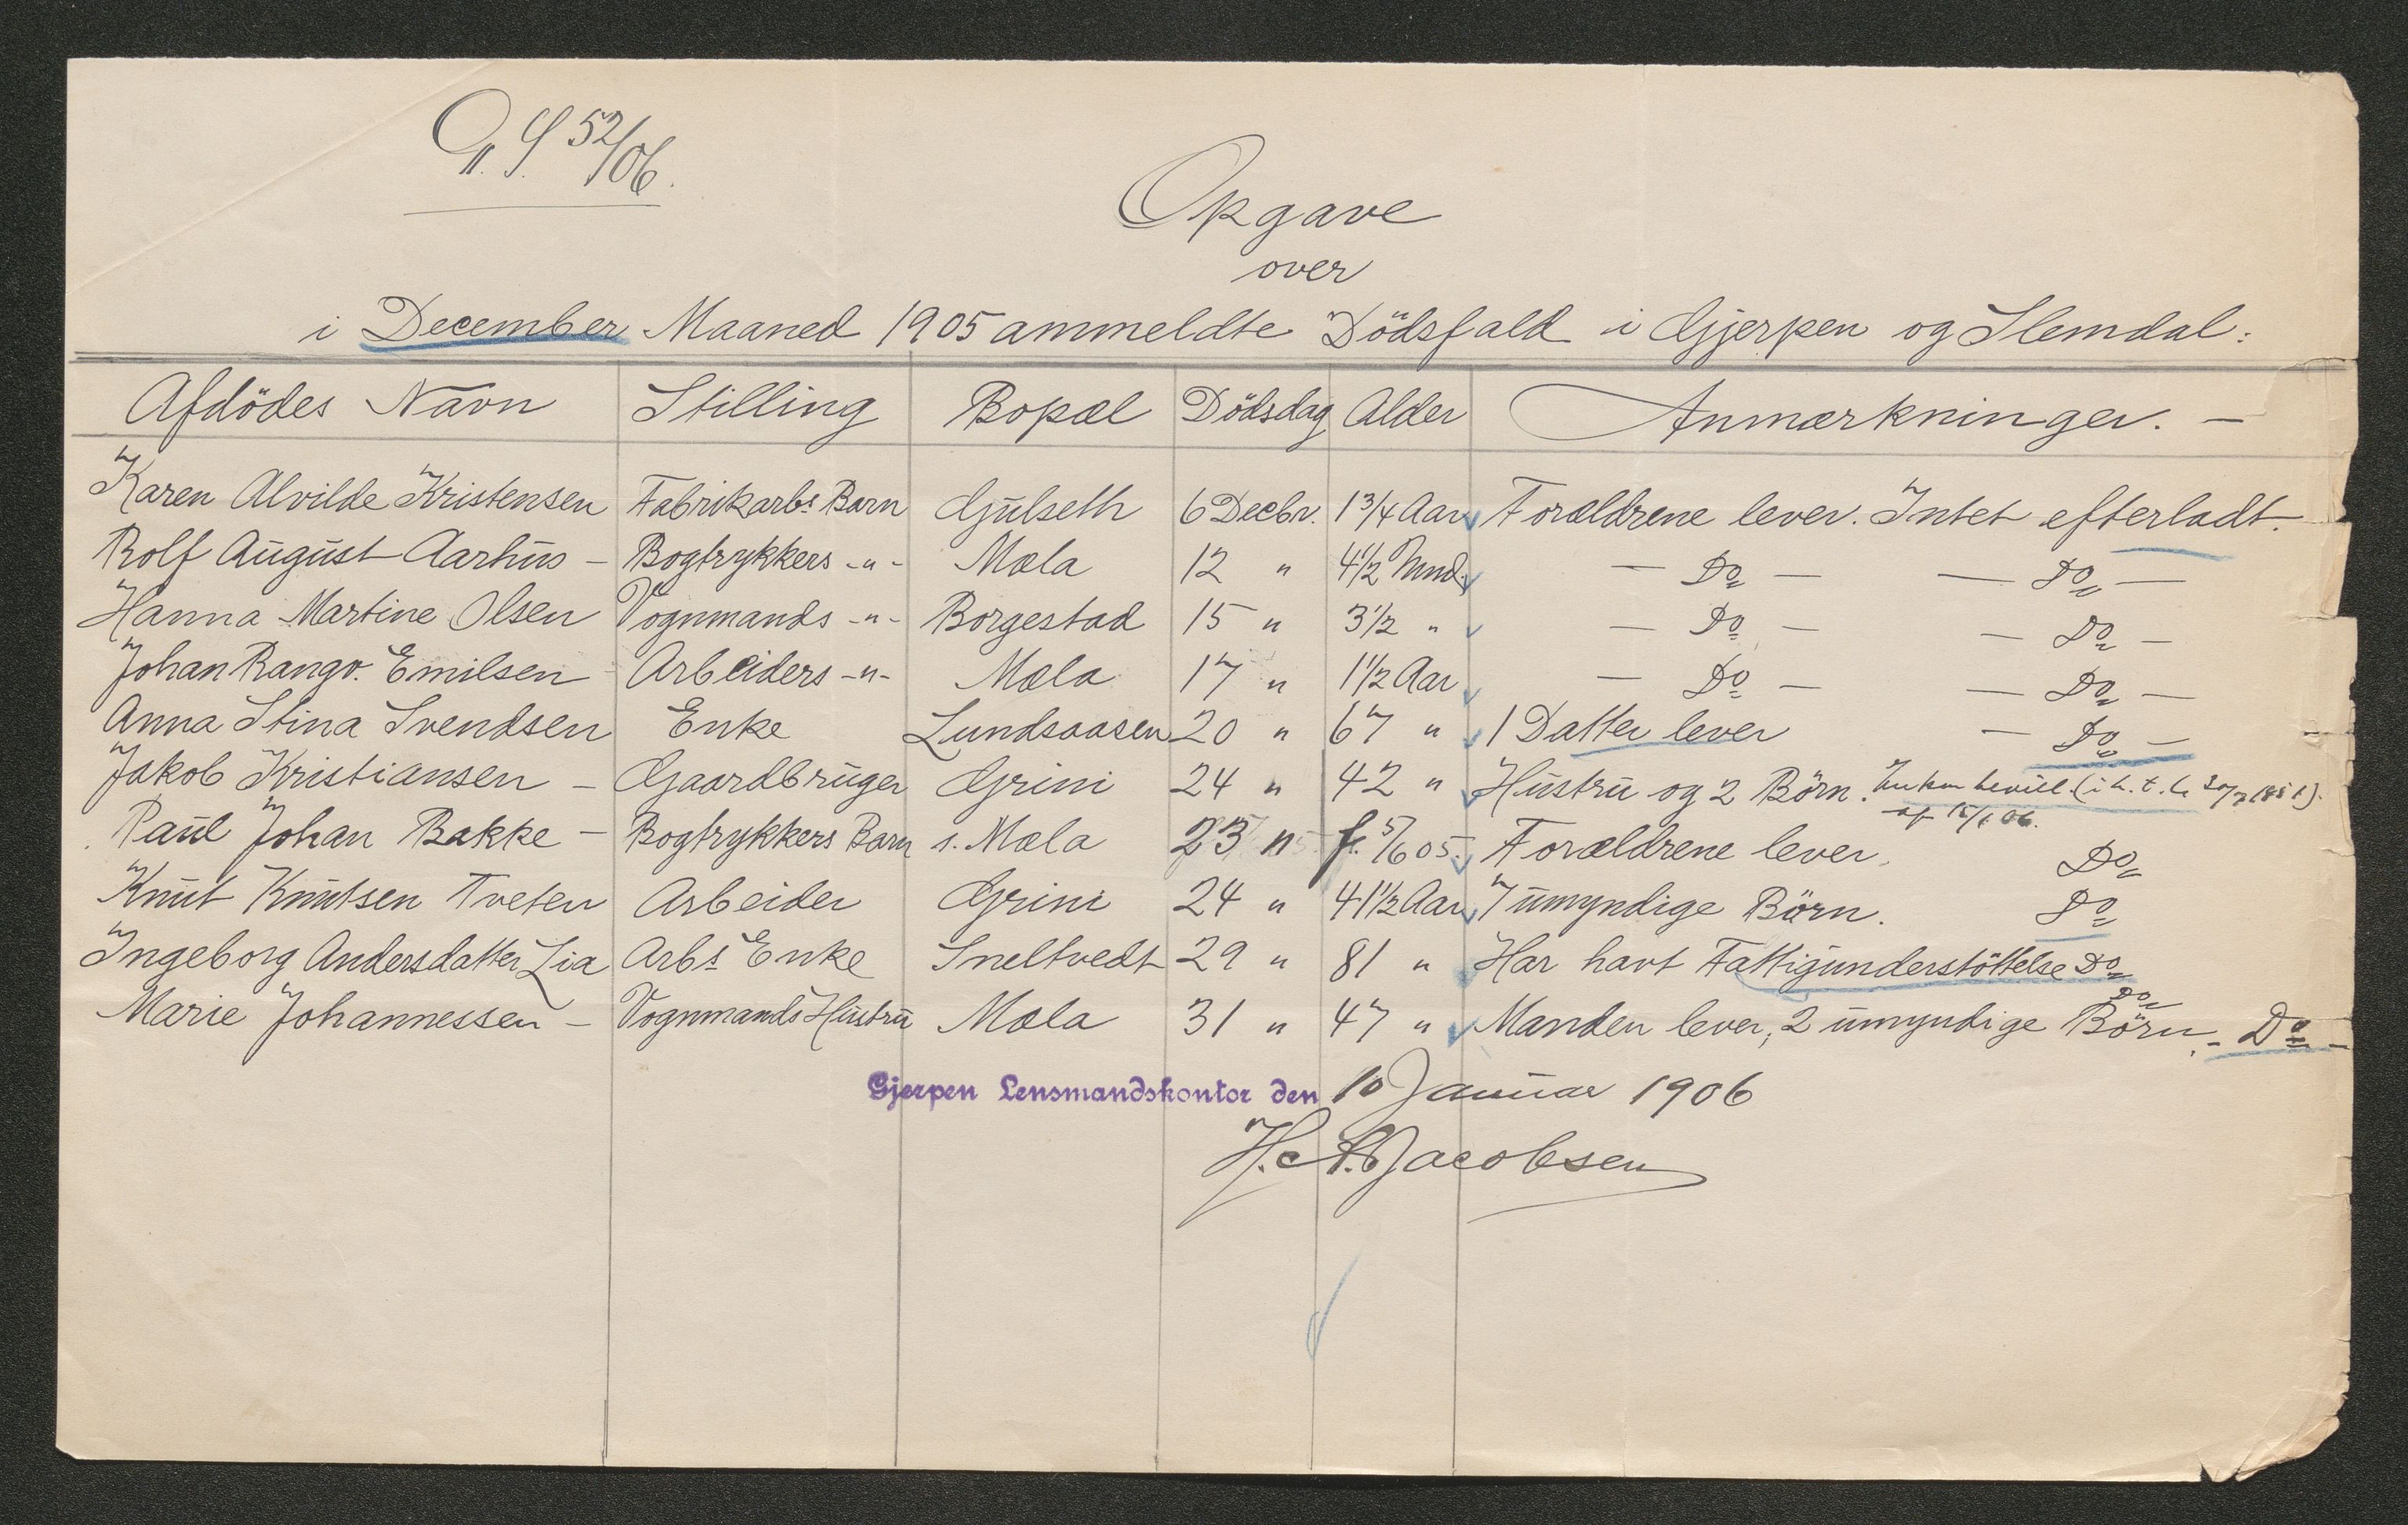 52/06.
Opgave
over
i December Maaned 1905 ammeldte Dödsfald i Gjerpen og Slemdal:
Afdödes Navn Stilling Bopæl Dödsdag Alder Anmærkninger. —
Karen Alvilde Kristensen Fabrikarbs. Barn Gjulseth 6 Decbr. 1 3/4 Aar Forældrene lever. Intet efterladt.
Rolf August Aarhus — Bogtrykkers -"- Mæla 12 " 4 1/2 Mnd. — Do — — Do —
Hanna Martine Olsen Vognmands -"- Borgestad 15 " 3 1/2 " — Do — — Do —
Johan Rangv. Emilsen Arbeiders -"- Mæla 17 " 1 1/2 Aar — Do — — Do —
Anna Stina Svendsen Enke Lundsaasen 20 " 67 " 1 Datter lever — Do —
Jakob Kristiansen — Gaardbruger Grini 24 " 42 " Hustru og 2 Börn. bevill. (i h. t. l. 30/7 1851).
af 15/1 06.
Paul Johan Bakke — Bogtrykkers Barn s. Mæla 23 " f. 5/6 05. Forældrene lever. Do
Knut Knutsen Tveten Arbeider Grini 24 " 41 1/2 Aar 7 umyndige Börn. Do
Ingeborg Andersdatter Lia Arbs Enke Sneltvedt 29 " 81 " Har havt Fattigunderstöttelse Do
Marie Johannessen — Vognmands Hustru Mæla 31 " 47 " Manden lever, 2 umyndige Börn. - Do -
Gjerpen Lensmandskontor den 10 Januar 1906
H. A. Jacobsen